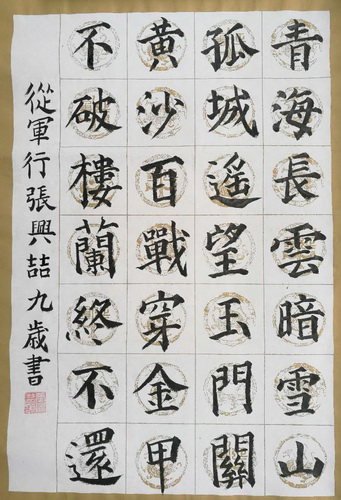 青海長雲暗雪山
孤城遥望玉門關
黃沙百戰穿金甲
不破樓蘭終不還
從軍行張興喆九歲書